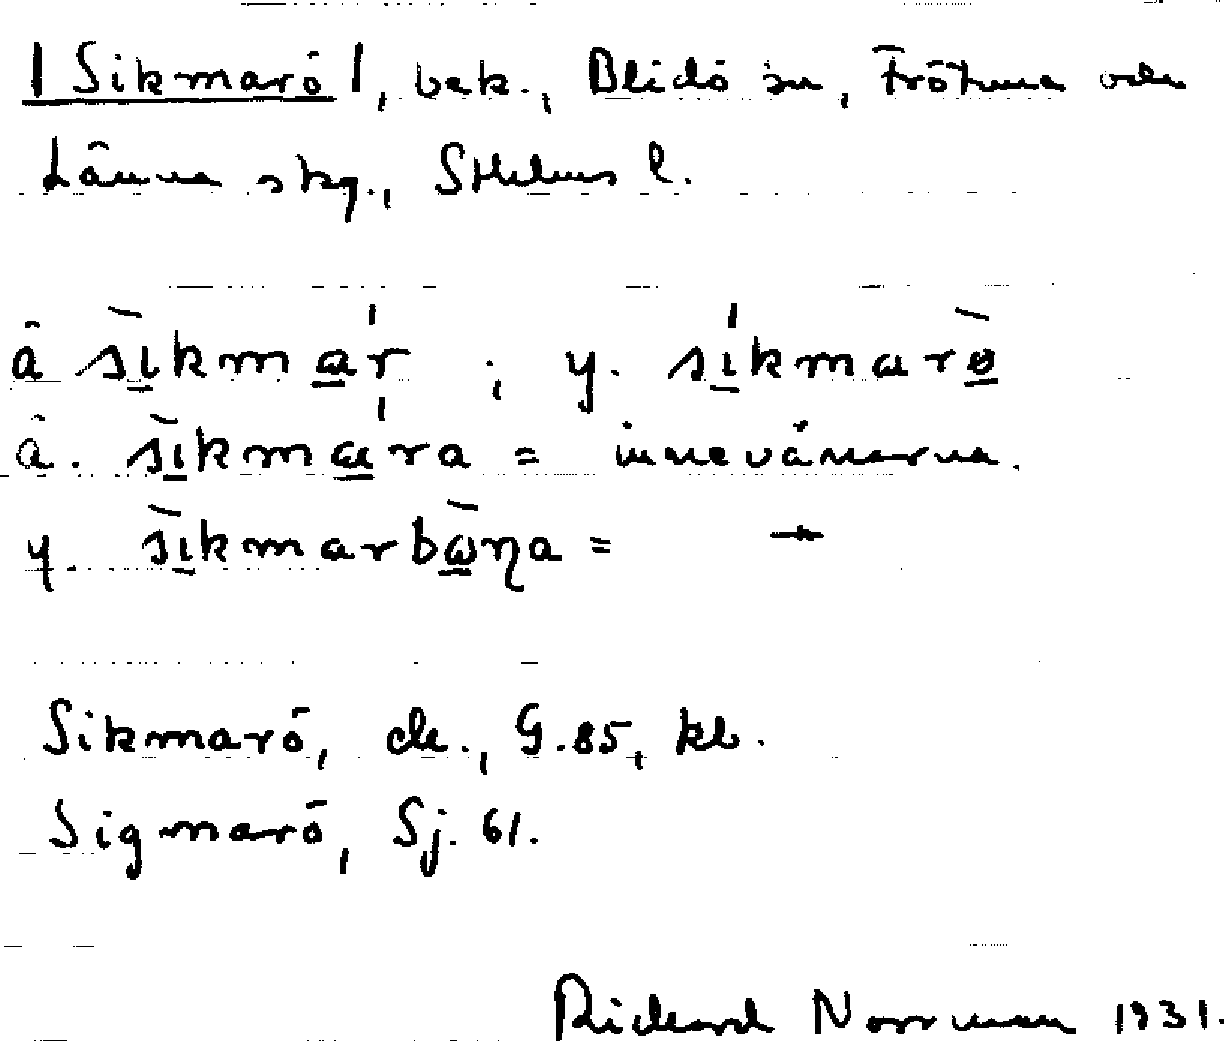 |Sikmarö|, bek., Blidö sn, Frötuna och
Länna skg., Sthlms l.
ä s̀ɩkmaŕ ; y. śɩkmarɵ̀
ä. s̀ɩkmaŕa = innevånarna.
y. s̀ɩkmarbὼŋa = –"–
Sikmarö, de., G. 85, kb.
Sigmarö, Sj. 61.
Rickard Norrman 1931.